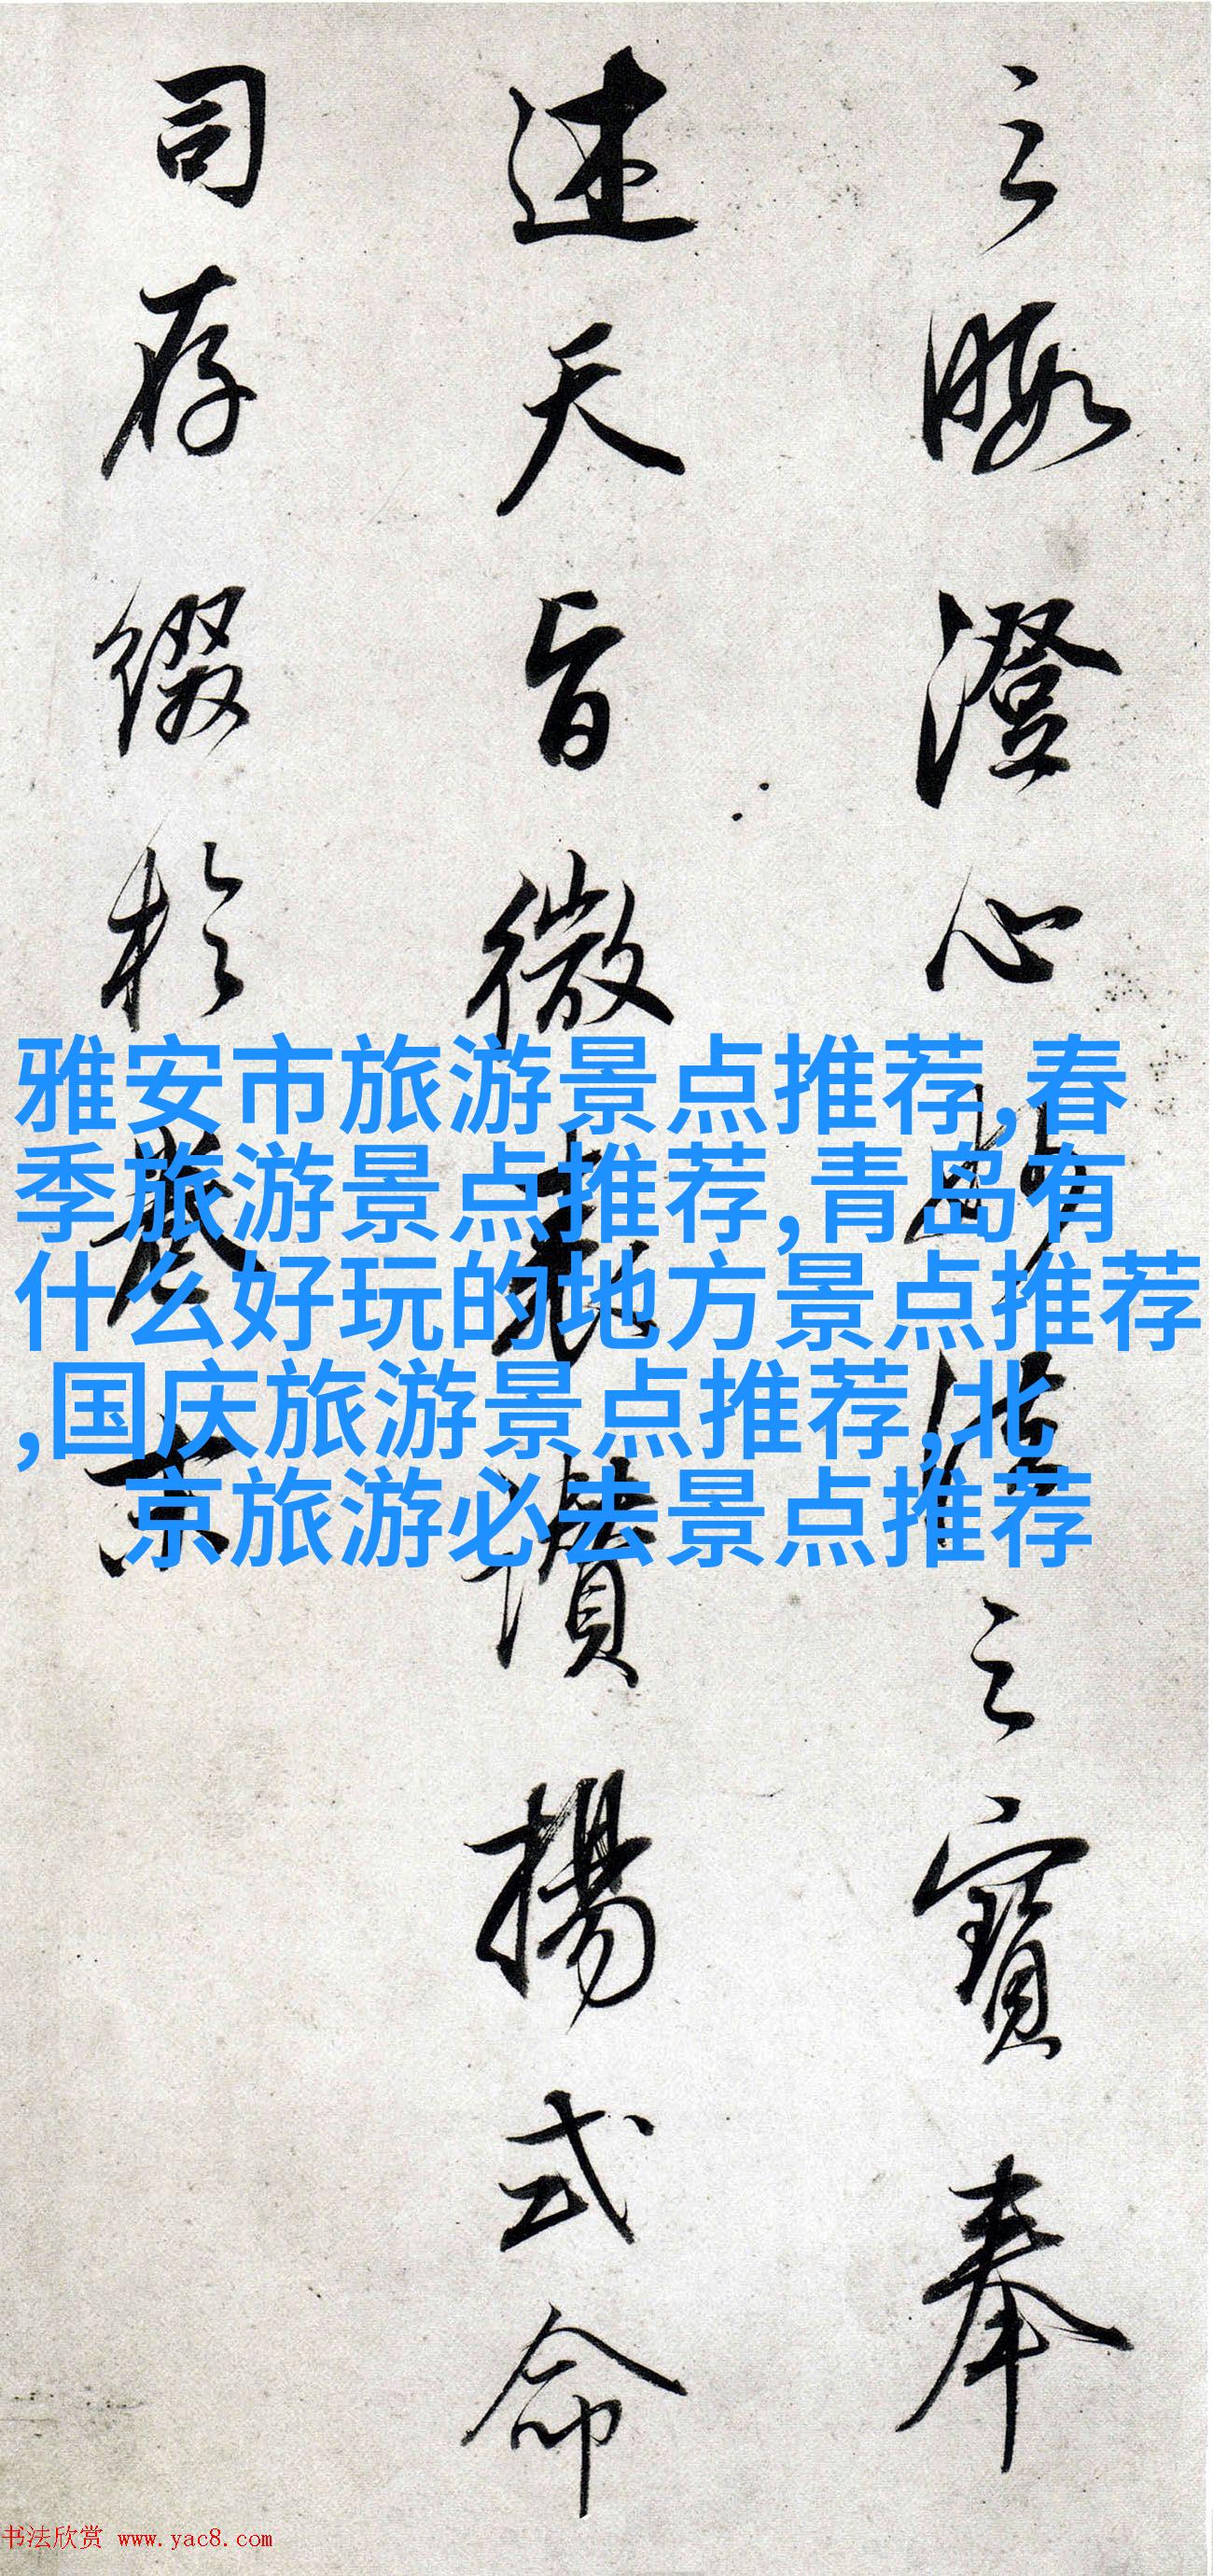 之暇澄心
之寶奉
述天旨微
讚揚式命
司存缀於
卷末
雅安市旅游景点推荐,春
季旅游景点推荐,青岛有
什么好玩的地方景点推荐
,国庆旅游景点推荐,北
京旅游必去景点推荐
书法欣赏 www.yac8.com